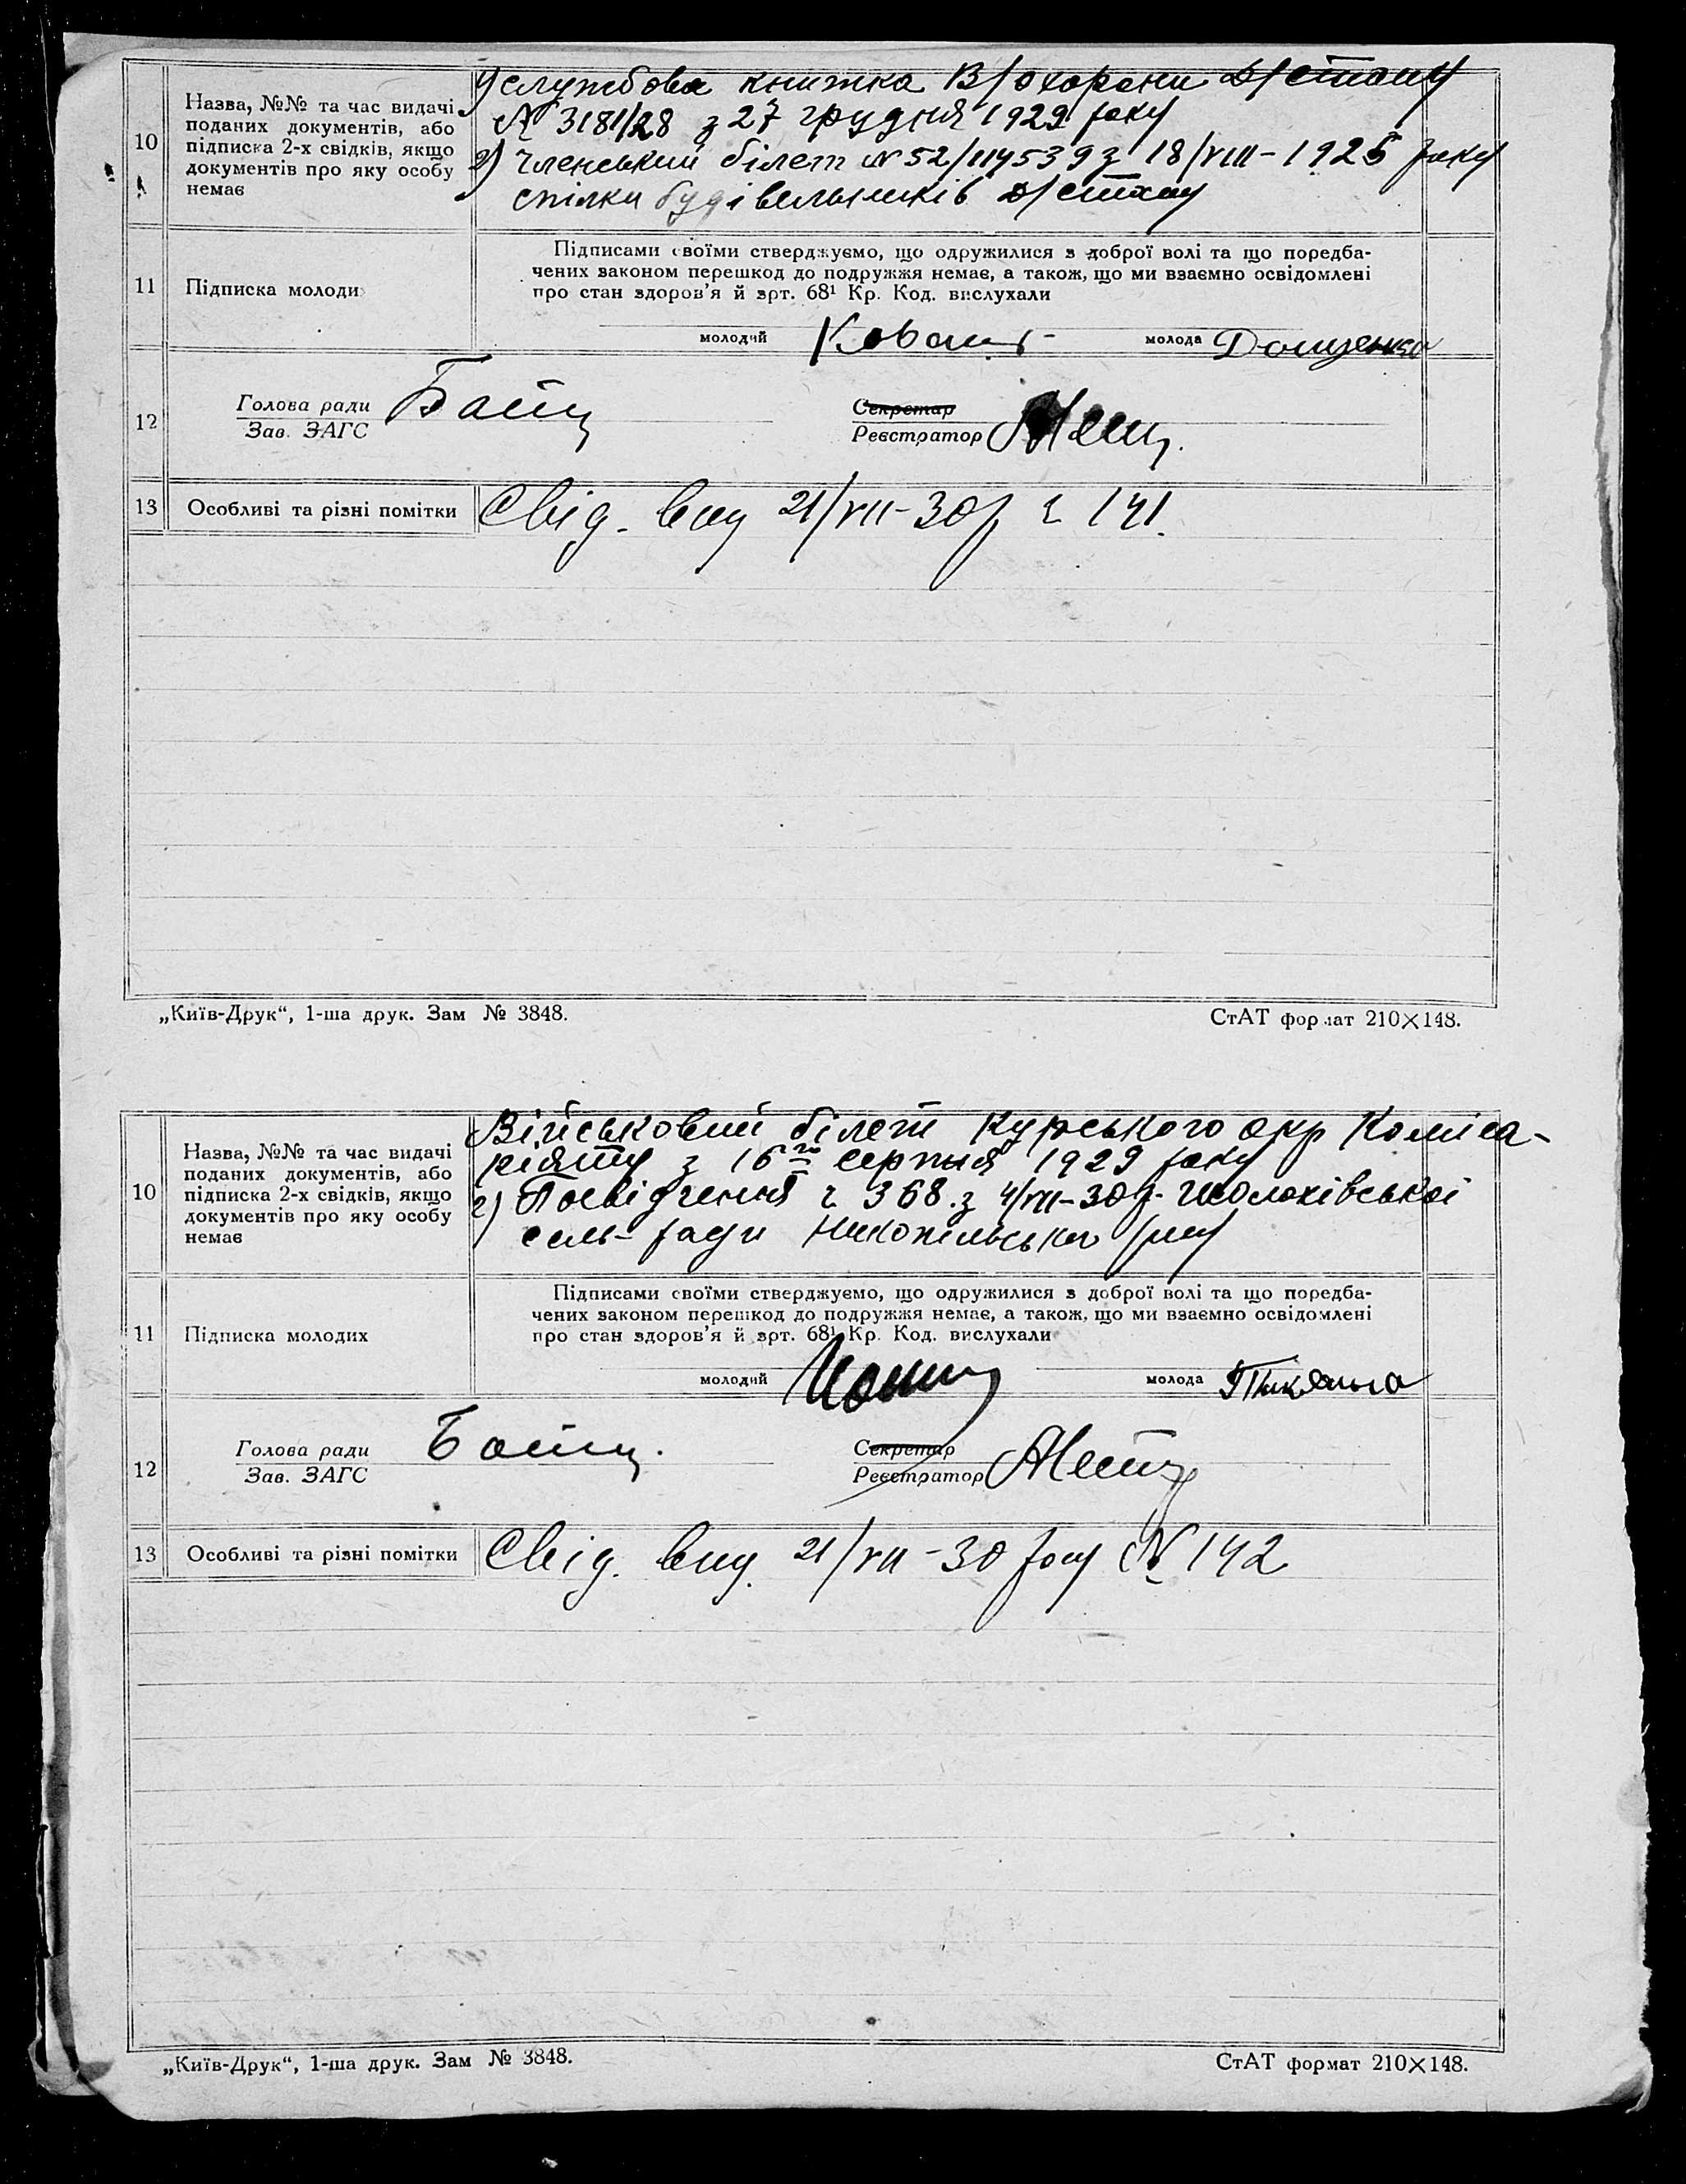 10
Назва, №№ та час видачі
поданих документів, або
підписка 2-х свідків, якщо
документів про яку особу
немає
службова книжка В/охорони
№ 3181/28 з 27 грудня 1929 року
2) членський білет № 52/ з 18/VIII-1925 року
спілки будівельників
11
Підписка молоди
Підписами своїми стверджуємо, що одружилися з доброї волі та що поредба-
чених законом перешкод до подружжя немає, а також, що ми взаємно освідомлені
про стан здоров'я й арт. 68¹ Кр. Код. вислухали
молодий молода Доценко
12
Голова ради
Зав. ЗАГС
Секретар
Реєстратор
13
Особливі та різні помітки
Свід. вид 21/VII-30 р ч 141.
„Київ-Друк“, 1-ша друк. Зам № 3848.
СтАТ формат 210×148.
10
Назва, №№ та час видачі
поданих документів, або
підписка 2-х свідків, якщо
документів про яку особу
немає
Військовий білет Курського окр Коміса-
ріяту з 16го серпня 1929 року
2) Посвідчення ч 368 з 4/VII-30 р. Шолохівської
сель-ради Никопільського р/ну
11
Підписка молодих
Підписами своїми стверджуємо, що одружилися з доброї волі та що поредба-
чених законом перешкод до подружжя немає, а також, що ми взаємно освідомлені
про стан здоров'я й арт. 68¹ Кр. Код. вислухали
молодий молода
12
Голова ради
Зав. ЗАГС
Секретар
Реєстратор
13
Особливі та різні помітки
Свід. вид. 21/VII-30 року № 142
„Київ-Друк“, 1-ша друк. Зам № 3848.
СтАТ формат 210×148.